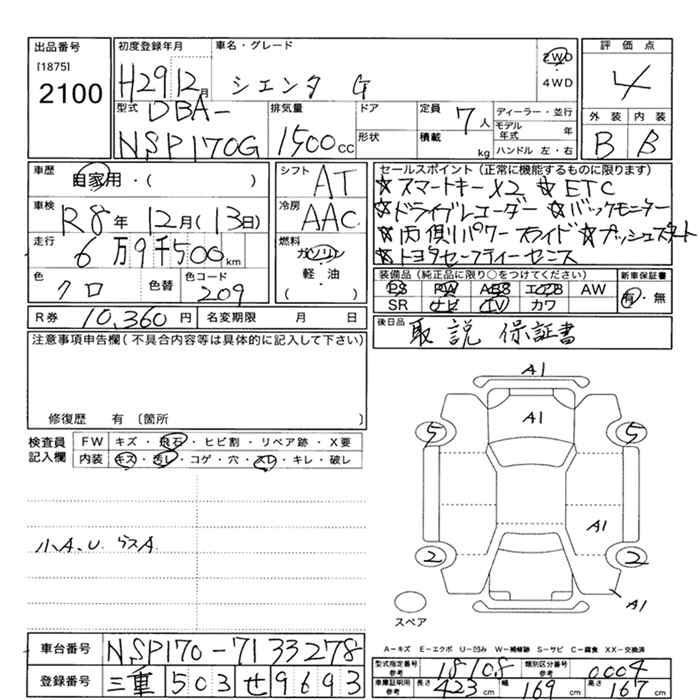 出品番号
[1875]
2100
初度登録年月
H29 12月
車名・グレード
シエンタ G
2WD
・
4WD
評価点
4
型式
DBA-
NSP170G
排気量
1500cc
ドア
形状
定員
7人
積載
kg
ディーラー・並行
モデル年式 年
ハンドル 左・右
外装 内装
B B
車歴
自家用・( )
車検
R8年 12月(13日)
走行
6万9千500km
色
クロ
色替
色コード
209
シフト
AT
冷房
AAC
燃料
ガソリン
軽・油
( )
セールスポイント(正常に機能するものに限ります)
☆スマートキー×2 ☆ETC
☆ドライブレコーダー ☆バックモニター
☆両側パワースライド ☆プッシュスタート
☆トヨタセーフティーセンス
装備品(純正品に限り○をつけてください)
PS PW ABS エアB AW
SR ナビ TV カワ
新車保証書
有・無
R券 10,360円
名変期限 月 日
後日品
取説 保証書
注意事項申告欄(不具合内容等は具体的に記入して下さい)
修復歴 有 〔箇所
検査員記入欄
FW キズ・飛石・ヒビ割・リペア跡・X要
内装 キズ・汚レ・コゲ・穴・スレ・キレ・破レ
小A、U
A1
A1
5 5
A1
2 2
A1
スペア
A-キズ E-エクボ U-凹み W-補修跡 S-サビ C-腐食 XX-交換済
車台番号 NSP170-7133278
登録番号 三重 503 せ 9693
型式指定番号 参考 18108 類別区分番号 参考 0004
車庫証明用 参考 長さ 423cm 幅 169cm 高さ 167cm